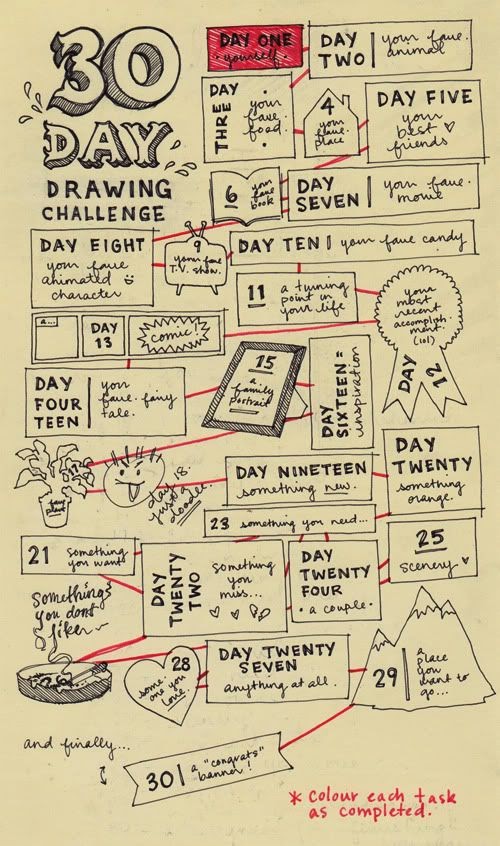 30
DAY
DRAWING
CHALLENGE
DAY ONE
• yourself •
DAY
TWO
your fave
animal
DAY
THREE
your
fave
food
4
your
fave
place
DAY FIVE
your
best
friends
6
your
fave
book
DAY
SEVEN
your fave
movie
DAY EIGHT
your fave
animated
character
9
your fave
T.V. show.
DAY TEN
your fave candy
11
a turning
point in
your life
your
most
recent
accomplish
ment.
(lol)
DAY
12
a...
DAY
13
comic!
DAY
FOUR
TEEN
your
fave. fairy
tale.
15
a
family
portrait
DAY
SIXTEEN =
inspiration
fave
plant
day 18
just a
doodle
DAY NINETEEN
something new.
DAY
TWENTY
something
orange.
21
something
you want
DAY
TWENTY
TWO
something
you
miss...
23 something you need...
DAY
TWENTY
FOUR
• a couple •
25
scenery
Somethings
you dont
like
DAY TWENTY
SEVEN
anything at all.
28
some
one you
love
29
a
place
you
want to
go...
and finally...
30
a "congrats"
banner!
* Colour each task
as completed.